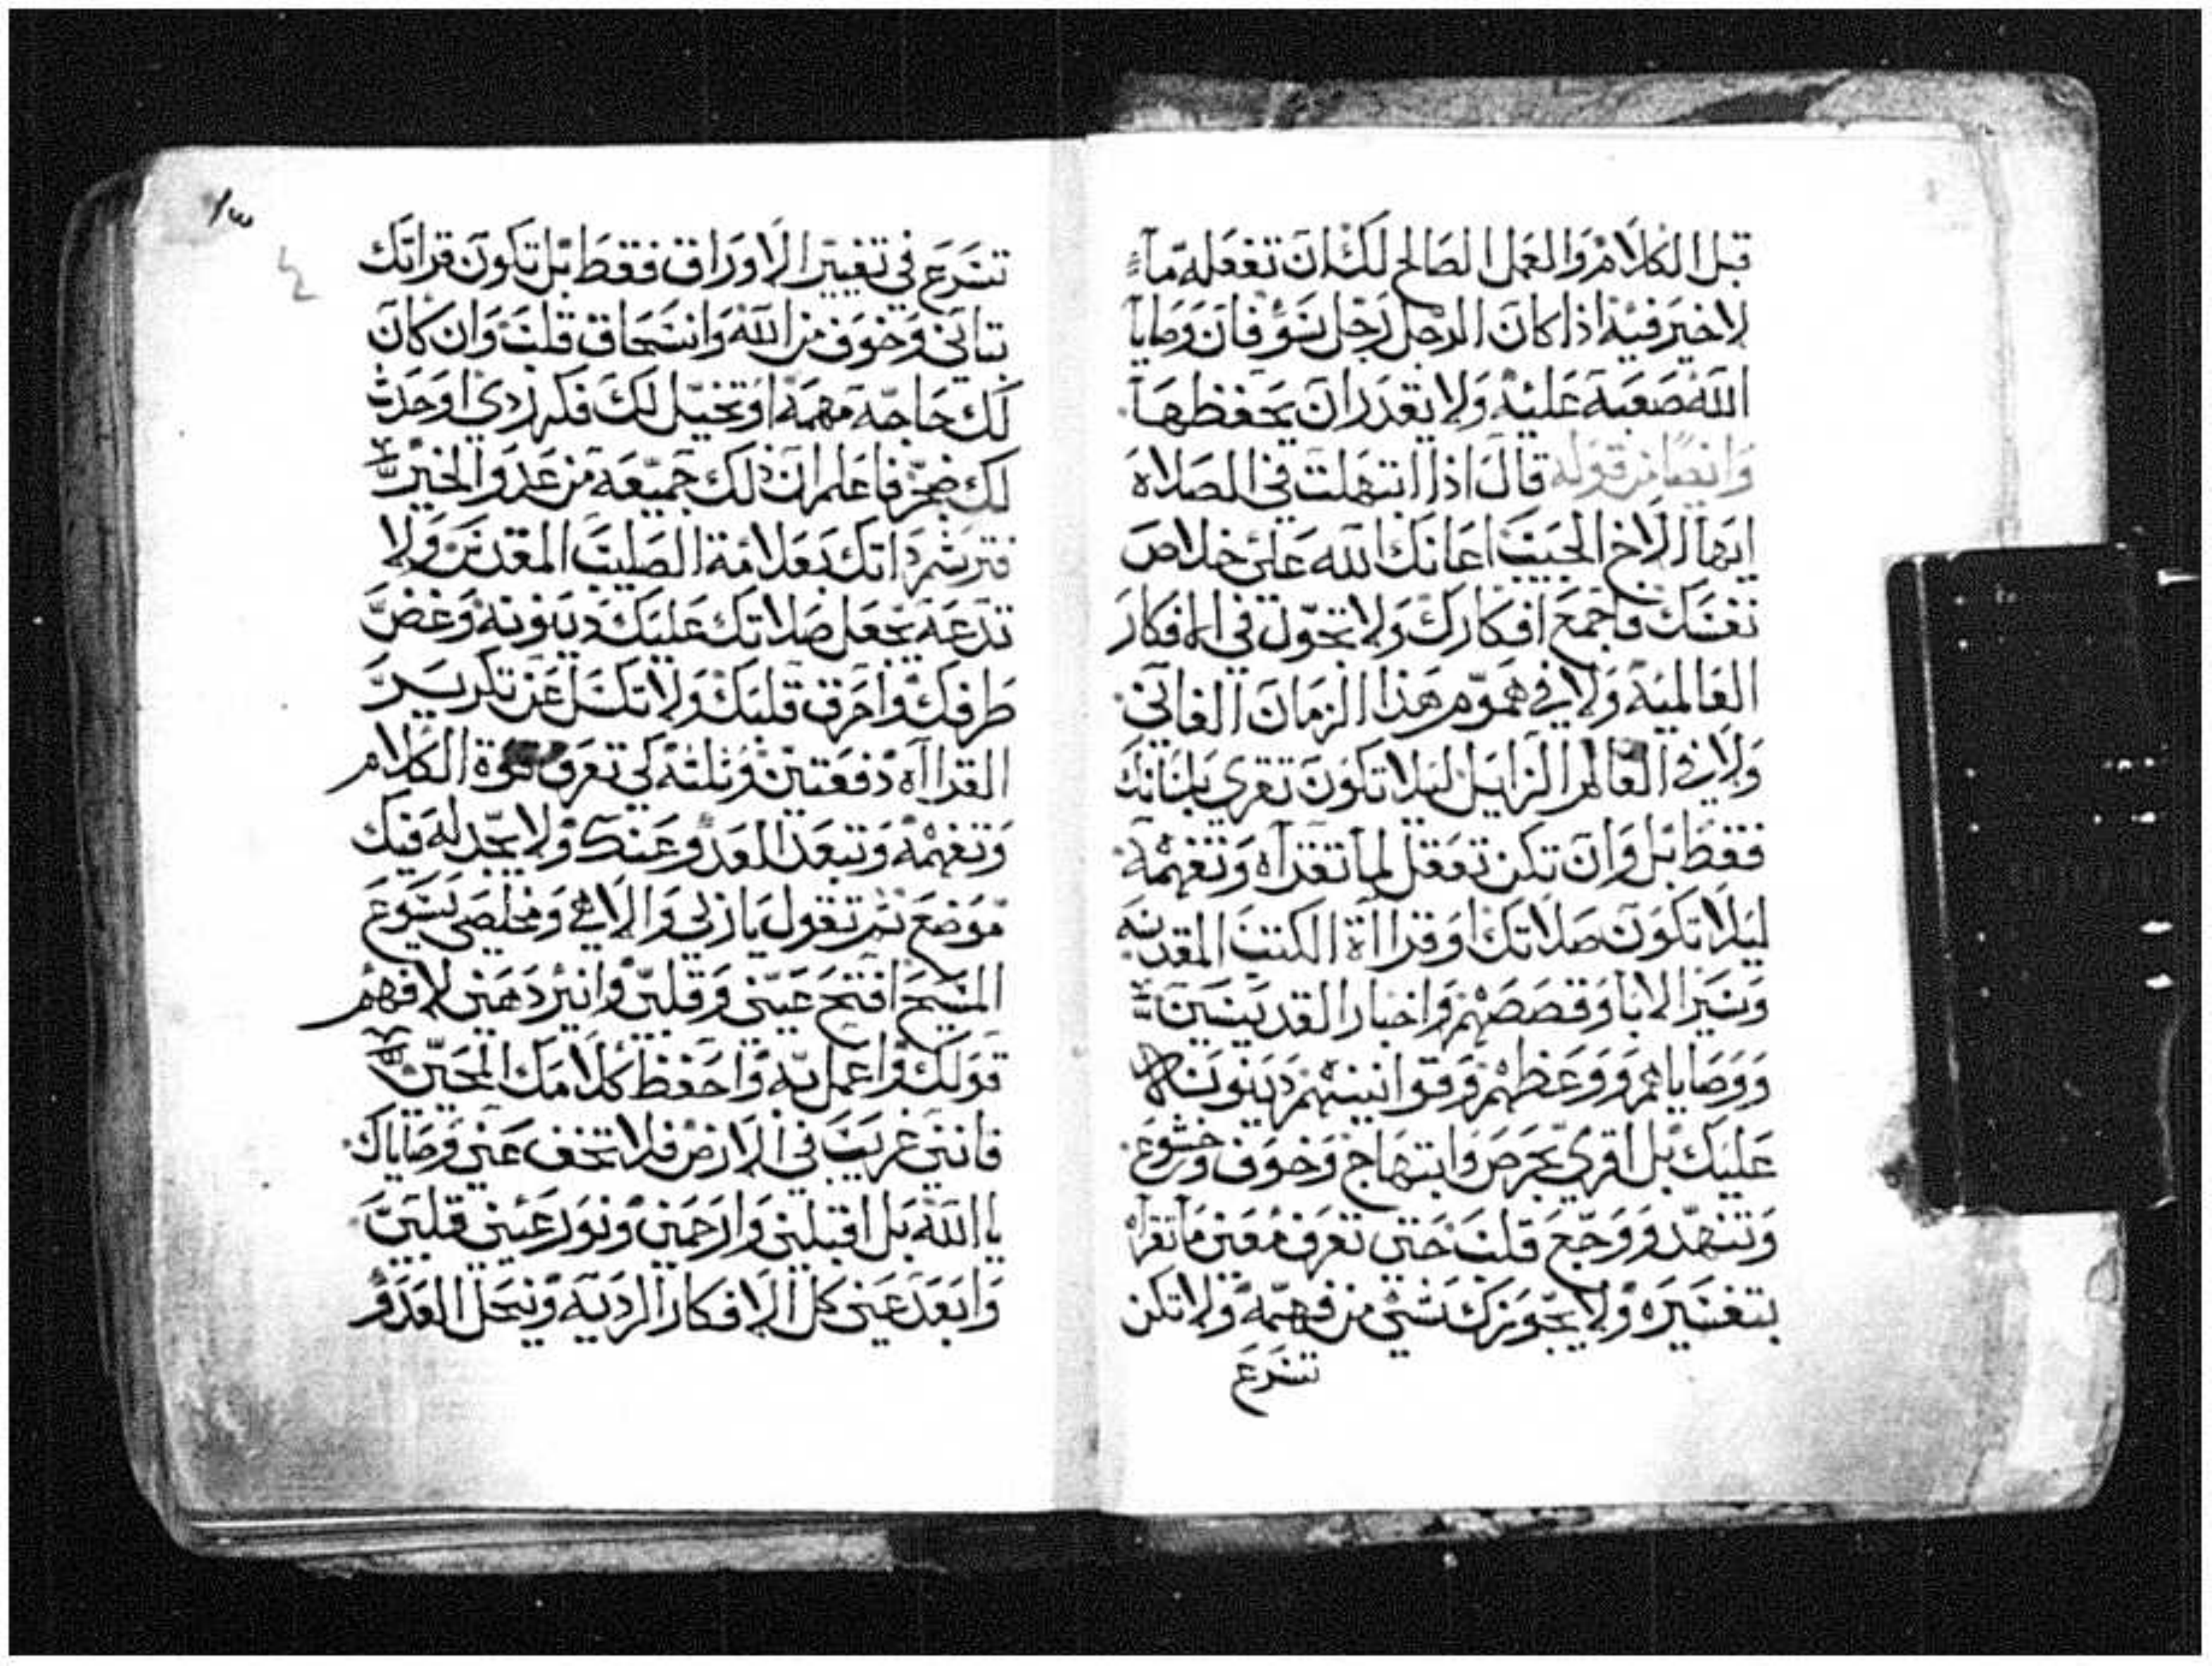 قبل الكلام والعمل الصالح لك ان تفعله ما
لا خير فيه اذا كان الرجل رجل سوء فان وصايا
الله صعبة عليه ولا يقدر ان يحفظها
وايضا من قوله قال اذا ابتهلت في الصلاة
ايها الاخ الحبيب اعانك الله على خلاص
نفسك فاجمع افكارك ولا تحول في الافكار
العالمية ولا في هموم هذا الزمان الفاني
ولا في العالم الزايل ليلا تكون تقري بلسانك
فقط بل وان تكن تعقل لما تقرآه وتفهمه
ليلا تكون صلاتك او قراآة الكتب المقدسه
وسير الابا وقصصهم واخبار القديسين
ووصاياهم ووعظهم وقوانينهم دينونة
عليك بل اقري بحرص وابتهاج وخوف وخشوع
وتنهد ووجع قلب حتى تعرف معنى ما تقرأ
بتفسيره ولا يجوزك شي من فهمه ولا تكن
تسرع
١٣
تسرع في تغيير الاوراق فقط بل تكون قراتك
بتاني وخوف من الله وانسحاق قلب وان كان
لك حاجة مهمة او تخيل لك فكر ردي او حدث
لك ضجر فاعلم ان ذلك جميعه من عدو الخير
فترشم ذاتك بعلامة الصليب المقدس ولا
تدعه يجعل صلاتك عليك دينونة وغض
طرفك واحرق قلبك ولا تكسل عن تكرير
القراآه دفعتين وثلثه كي تعرف قوة الكلام
وتفهمه وتبعد العدو عنك ولا يجد له فيك
موضع ثم تقول يا ربي والاهي ومخلصي يسوع
المسيح افتح عيني وقلبي وانير ذهني لافهم
قولك واعمل به واحفظ كلامك المحيي
فانني غريب في الارض فلا تخف عني وصاياك
يا الله بل اقبلني وارحمني ونور عيني قلبي
وابعد عني كل الافكار الرديه ونحل العدو